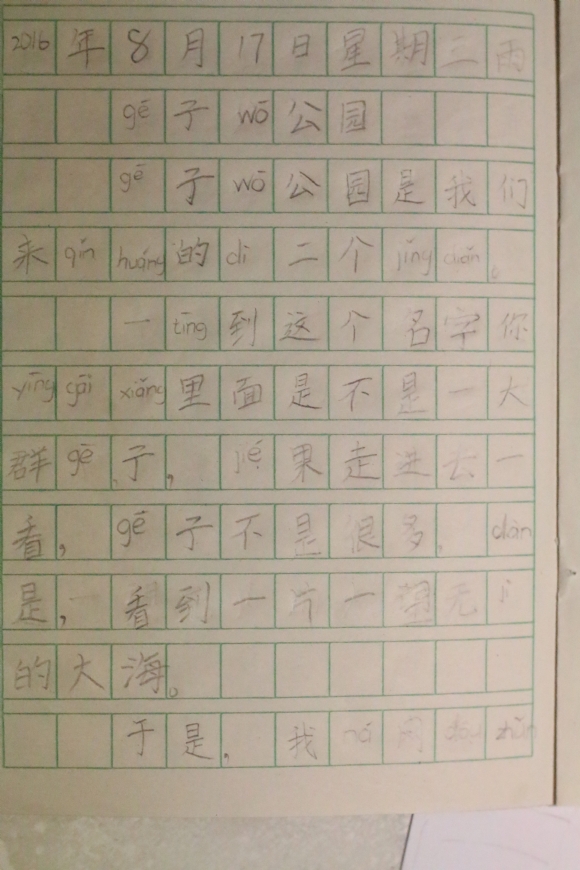 2016年8月17日星期三雨
gē子wō公园
gē子wō公园是我们
来qín huáng的dì二个jǐng diǎn。
一tīng到这个名字你
yīng gāi xiǎng里面是不是一大
群gē子，jié果走进去一
看，gē子不是很多，dàn
是，看到一片一望无jì
的大海。
于是，我ná